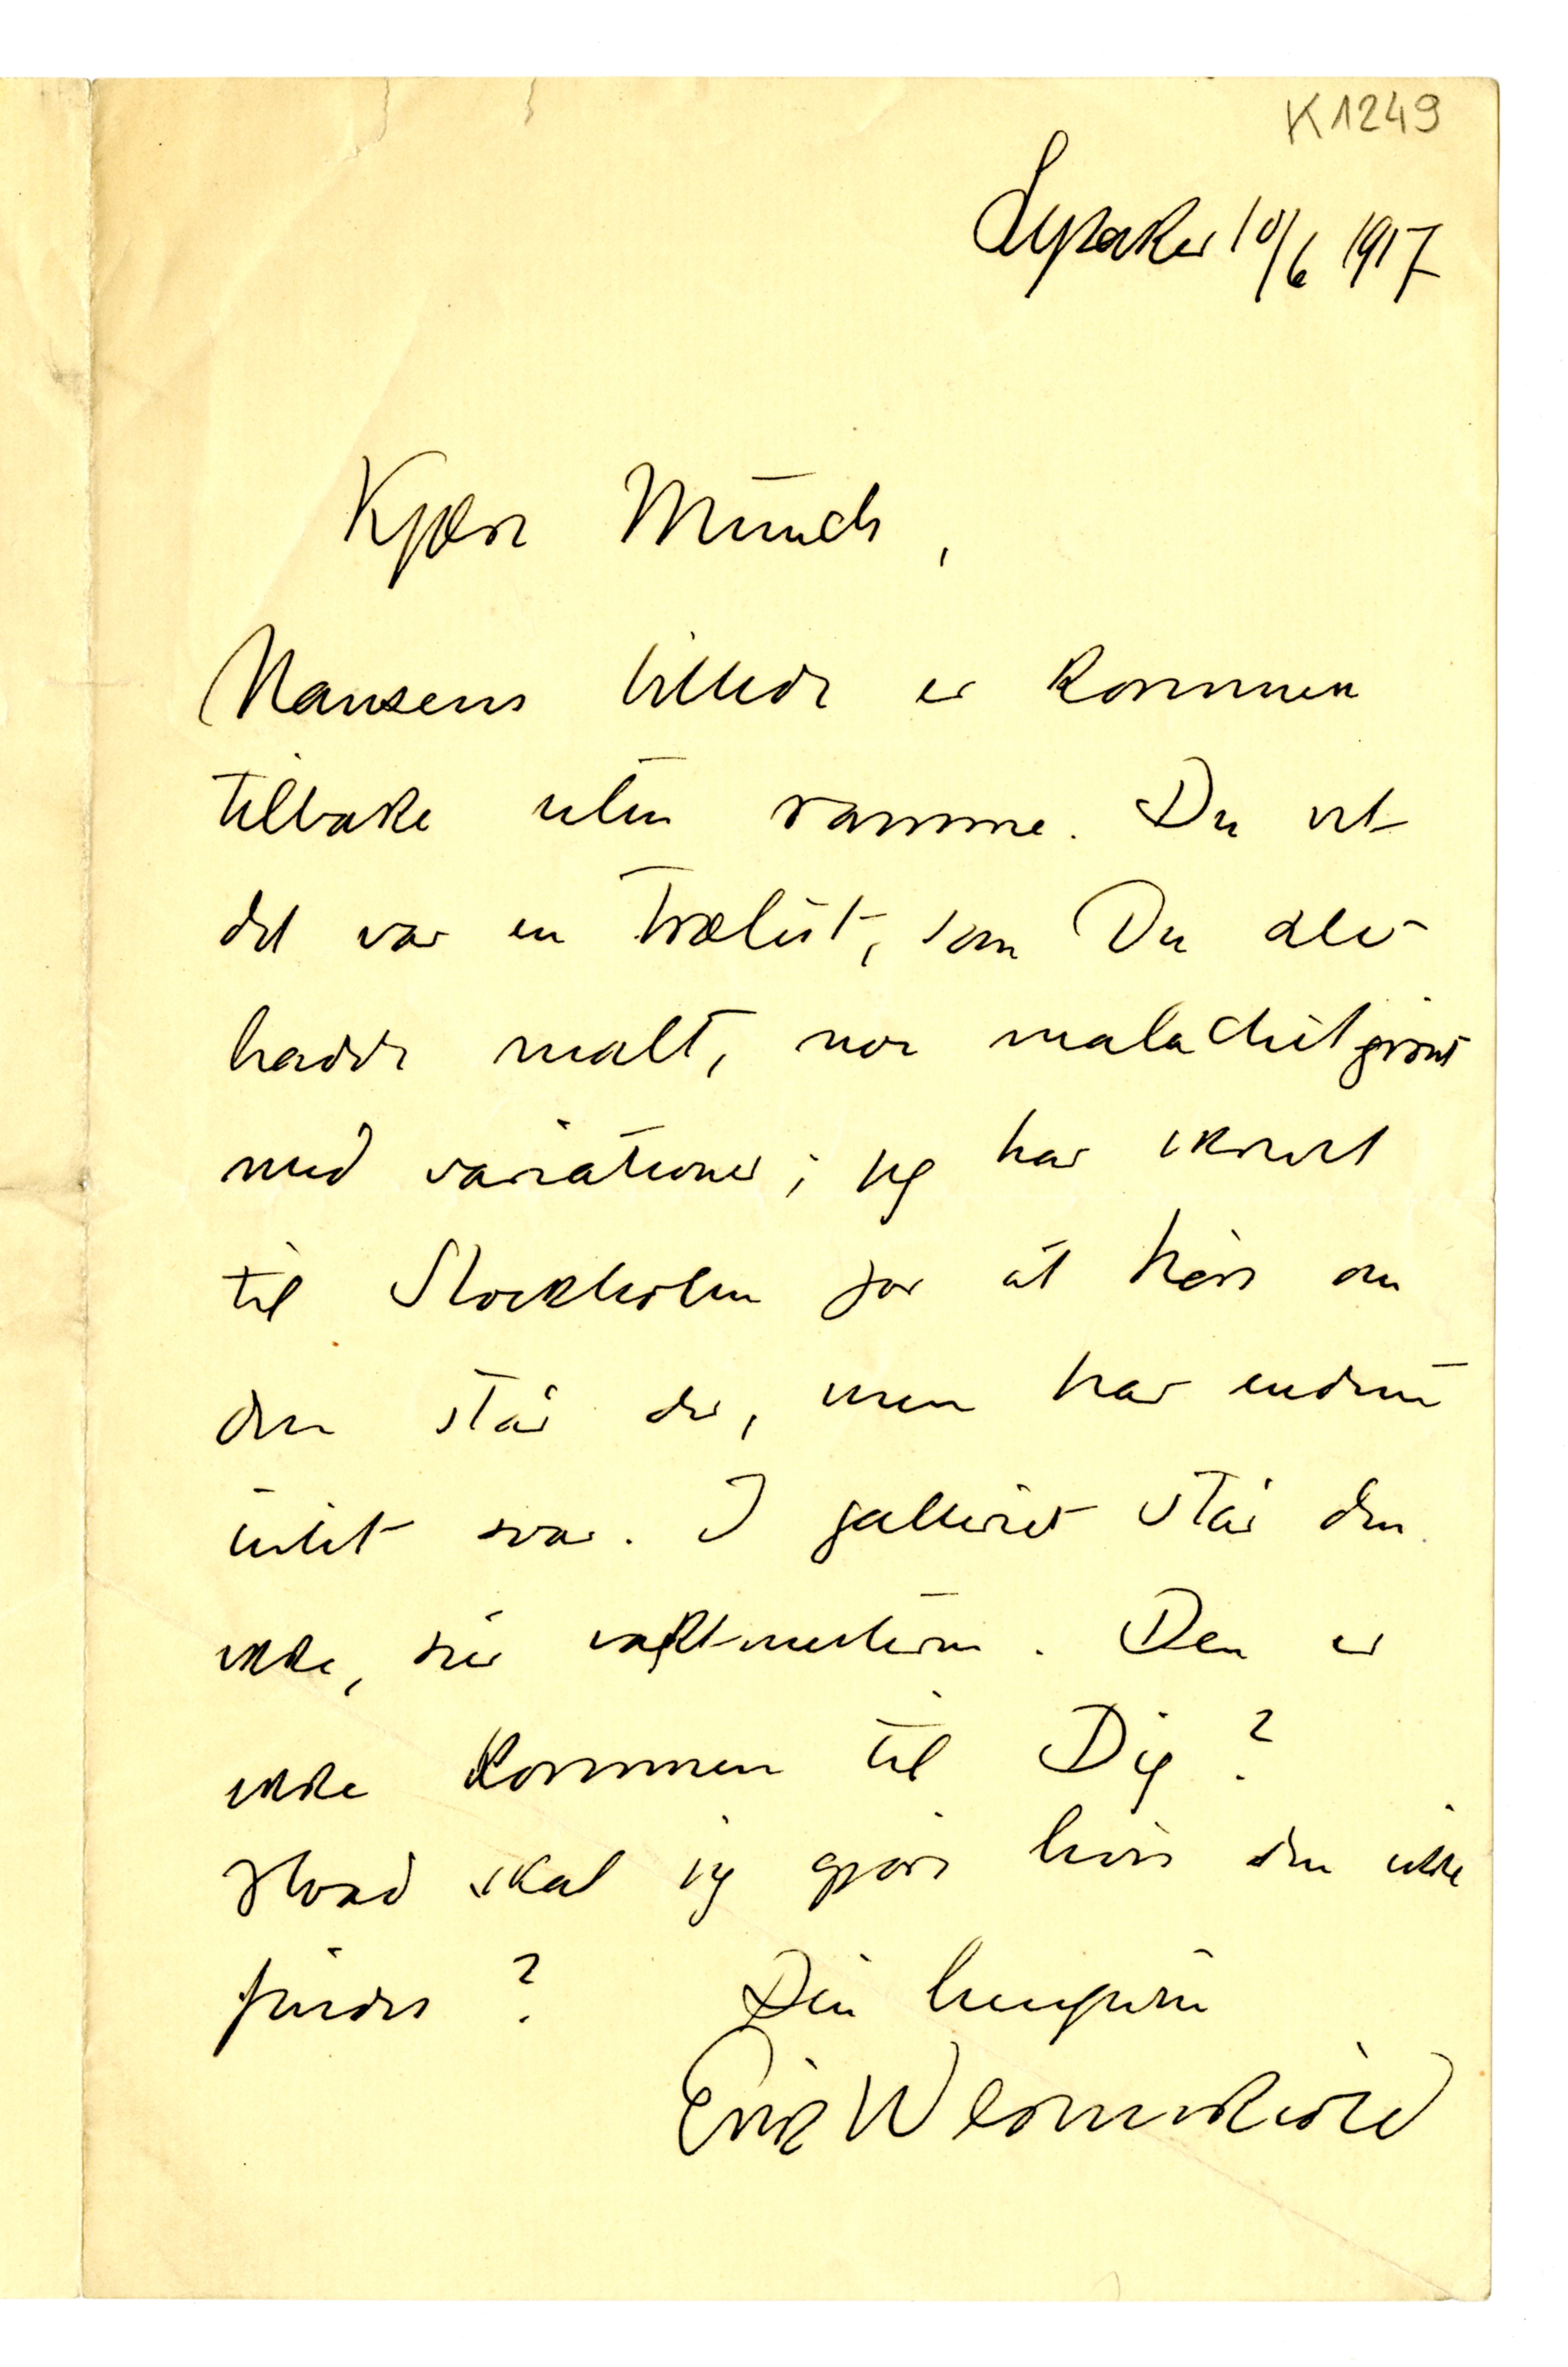 K1249
Lysaker 10/6 1917
Kjære Munch,
Nansens billede er kommen
tilbake uten ramme. Du vet
det var en trælist, som Du selv
hadde malt, noe malachitgrønt
med variationer; jeg har skrevet
til Stockholm for at høre om
den står der, men har endnu
intet svar. I galleriet står den
ikke, sier vaktmesteren. Den er
ikke kommen til Dig?
Hvad skal jeg gjøre hvis den ikke
findes? Din hengivne
Erik Werenskiold